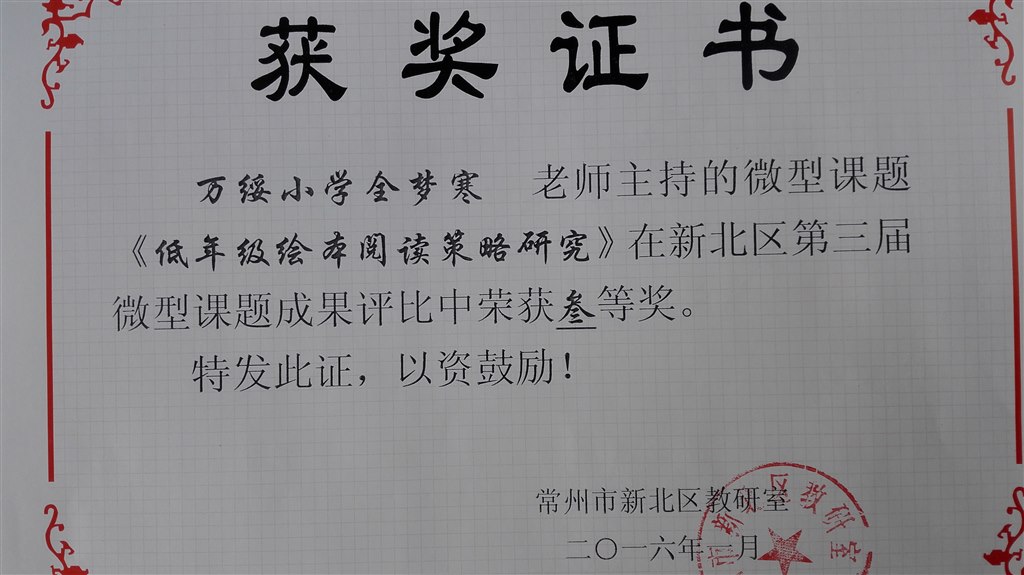 获奖证书
万绥小学全梦寒 老师主持的微型课题
《低年级绘本阅读策略研究》在新北区第三届
微型课题成果评比中荣获叁等奖。
特发此证，以资鼓励！
常州市新北区教研室
二〇一六年 月
区教研室